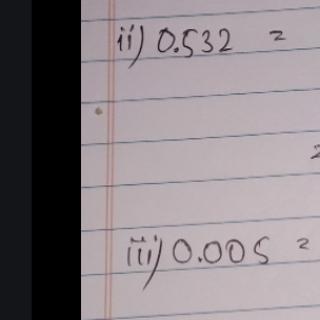 ii) 0.532 =
=
iii) 0.005 =